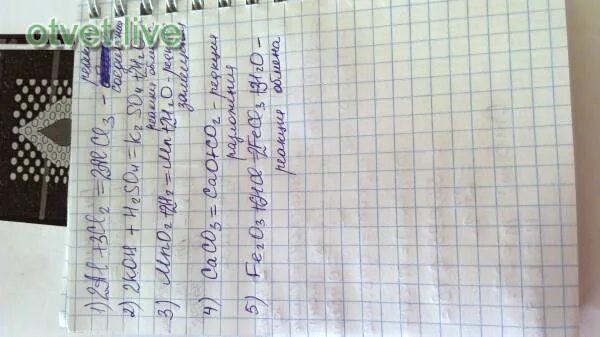 otvet.live
1) 2Al + 3Cl2 = 2AlCl3 - реакция
соединения
2) 2KOH + H2SO4 = K2SO4 + 2H2O
реакция обмена
3) MnO2 + 2H2 = Mn + 2H2O реакция
замещения
4) CaCO3 = CaO + CO2 - реакция
разложения
5) Fe2O3 + 6HCl = 2FeCl3 + 3H2O -
реакция обмена